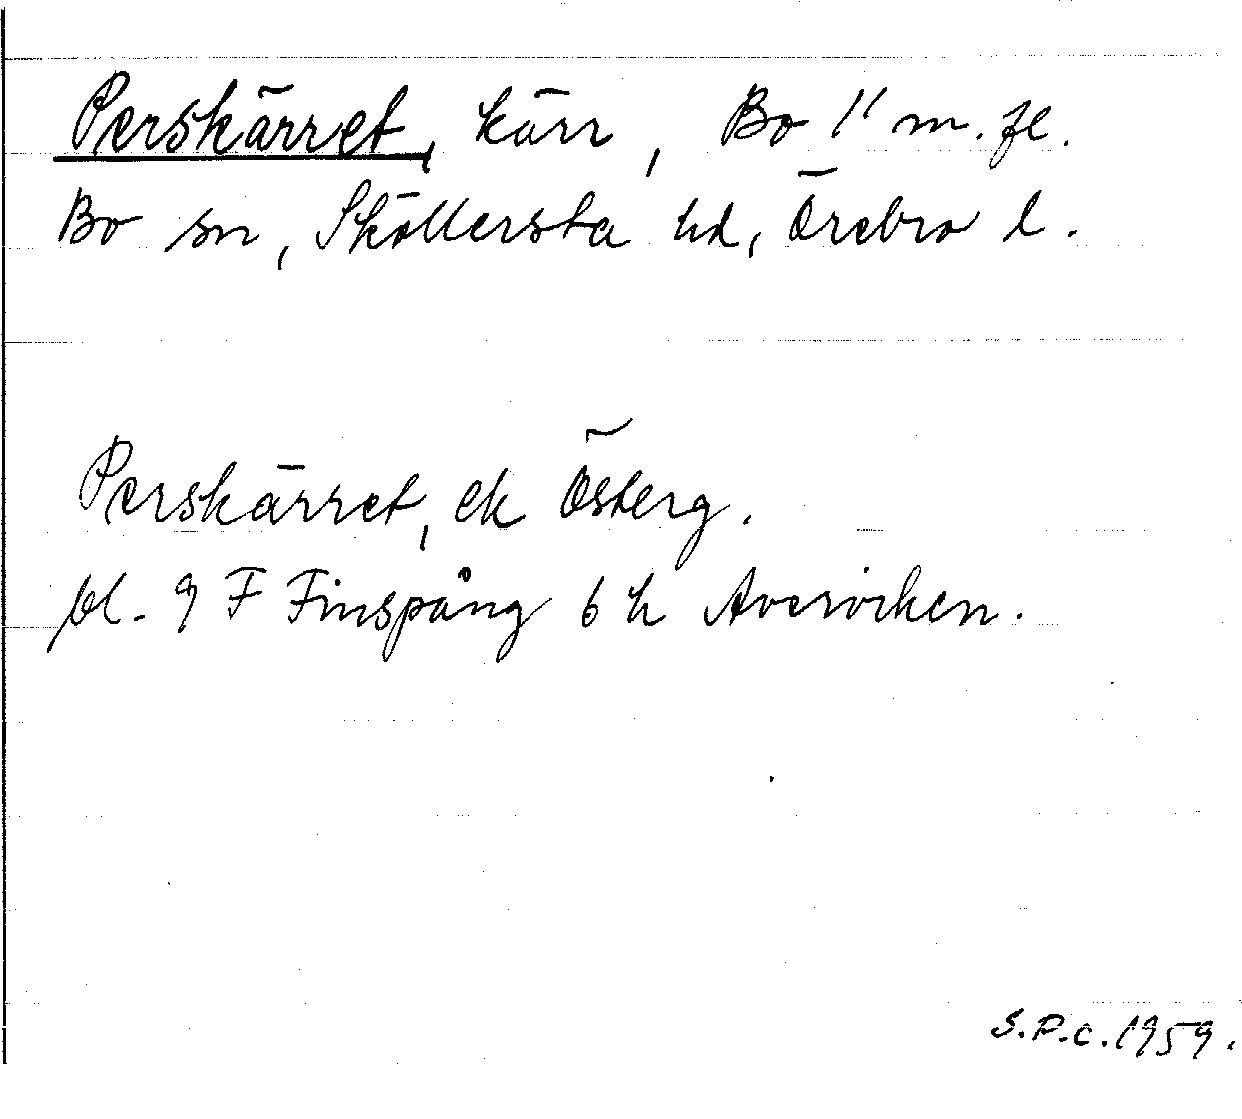 Perskärret, kärr, Bo 1¹ m.fl.
Bo sn, Sköllersta hd, Örebro l.
Perskärret, ek Österg.
bl. 9 F Finspång 6 h Avervicken.
S.P.C. 1959.